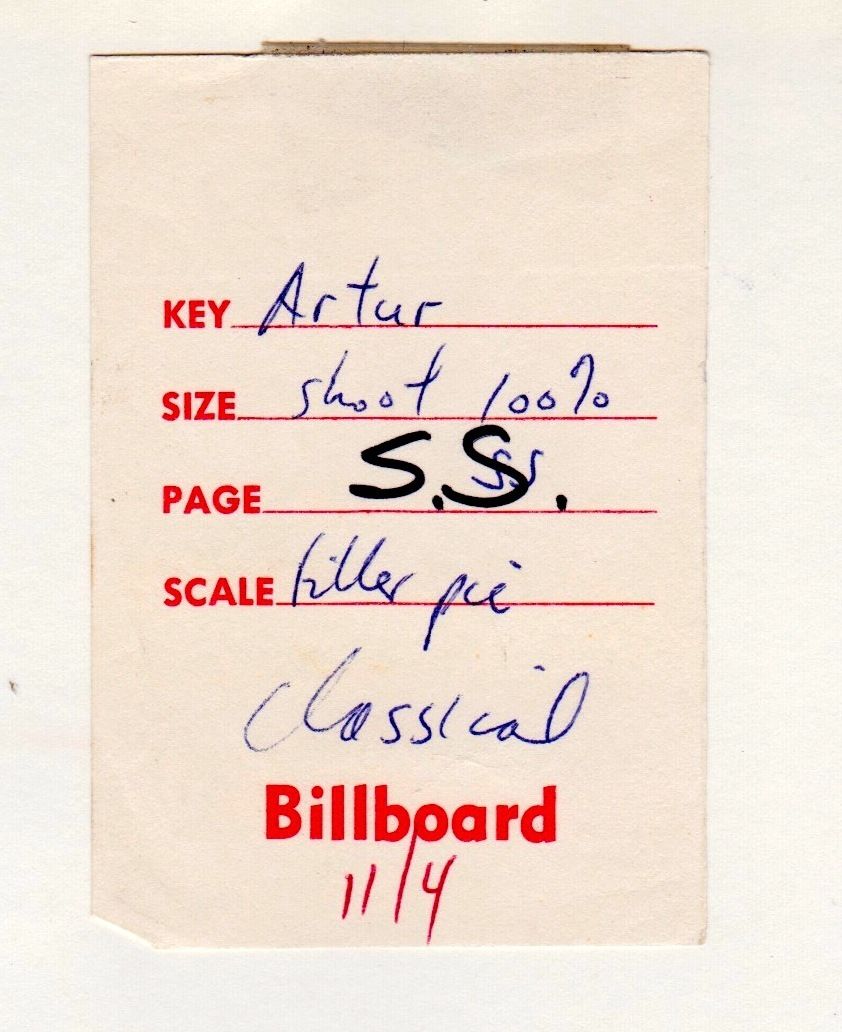 KEY Artur
SIZE shoot 100%
PAGE S.S.
SCALE filler pic
classical
Billboard
11/4